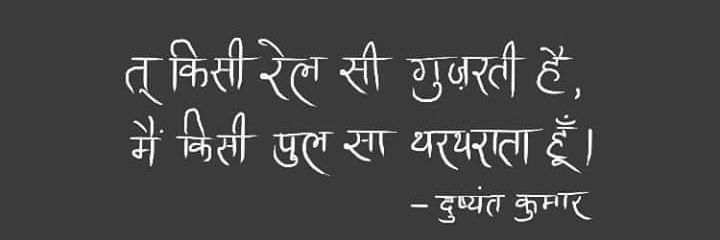 तू किसी रेल सी गुज़रती है,
मैं किसी पुल सा थरथराता हूँ।
- दुष्यंत कुमार